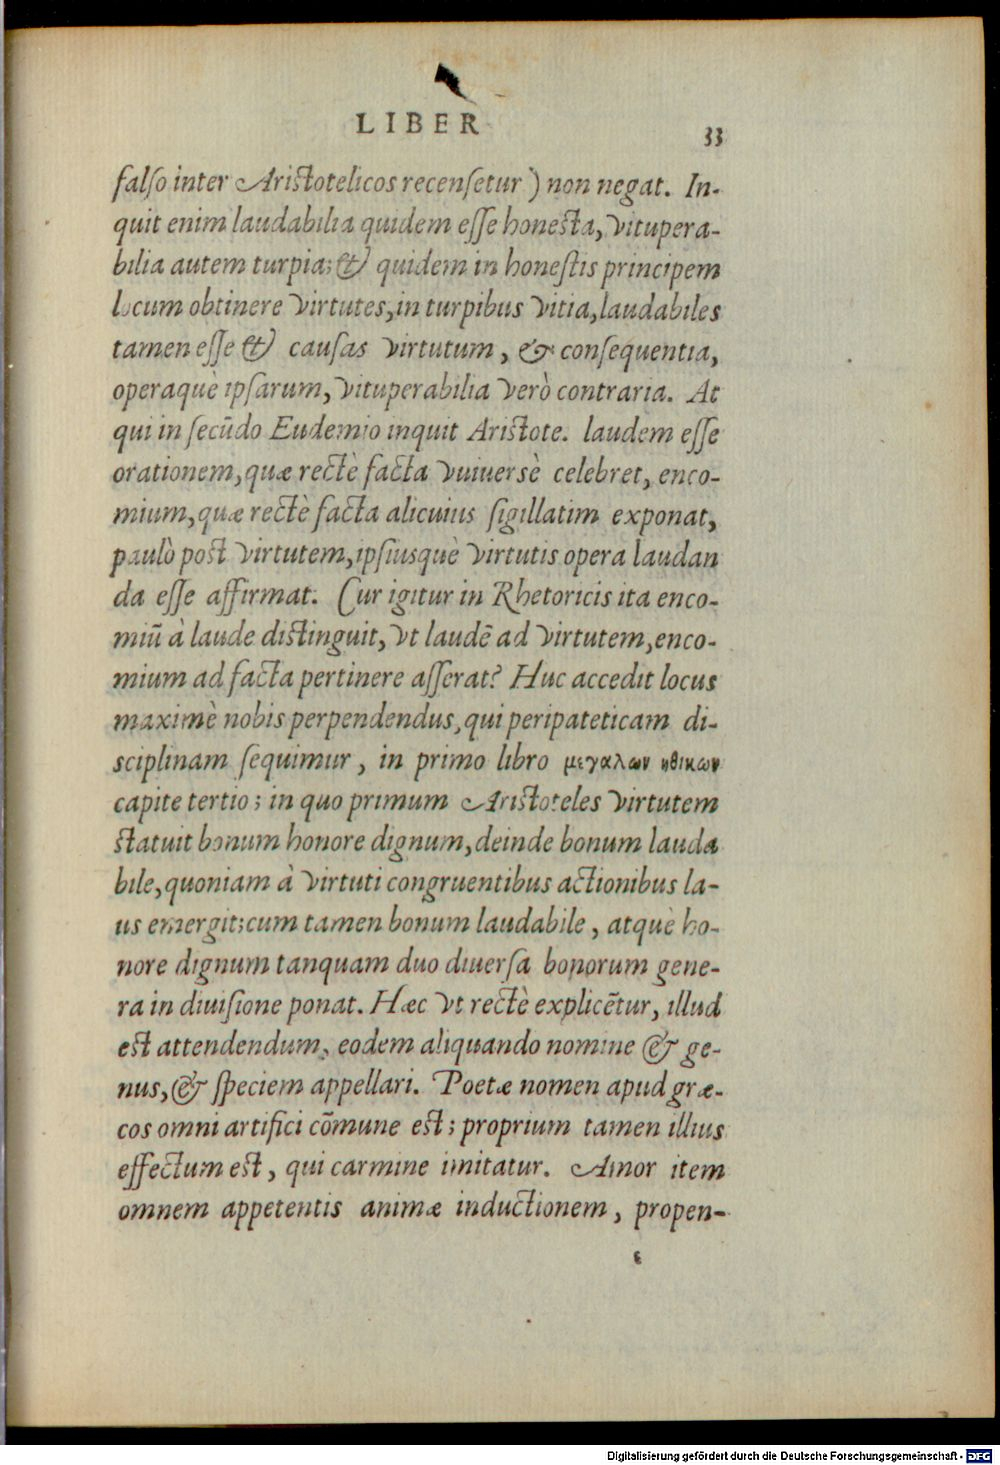 LIBER
33
falſo inter Ariſtotelicos recenſetur) non negat. In-
quit enim laudabilia quidem eſſe honeſta, vitupera-
bilia autem turpia; & quidem in honeſtis principem
locum obtinere virtutes, in turpibus vitia, laudabiles
tamen eſſe & cauſas virtutum, & conſequentia,
operaquè ipſarum, vituperabilia verò contraria. At
qui in ſecūdo Eudemio inquit Ariſtote. laudem eſſe
orationem, quæ rectè facta vuiuersè celebret, enco-
mium, quæ rectè facta alicuius ſigillatim exponat,
paulò poſt virtutem, ipſiusquè virtutis opera laudan
da eſſe affirmat. Cur igitur in Rhetoricis ita enco-
miū à laude diſtinguit, vt laudē ad virtutem, enco-
mium ad facta pertinere aſſerat? Huc accedit locus
maximè nobis perpendendus, qui peripateticam di-
sciplinam ſequimur, in primo libro μεγαλων ηθικων
capite tertio; in quo primum Ariſtoteles virtutem
ſtatuit bonum honore dignum, deinde bonum lauda
bile, quoniam à virtuti congruentibus actionibus la-
us emergit; cum tamen bonum laudabile, atquè ho-
nore dignum tanquam duo diuerſa bonorum gene-
ra in diuiſione ponat. Hæc vt rectè explicētur, illud
eſt attendendum, eodem aliquando nomine & ge-
nus, & ſpeciem appellari. Poetæ nomen apud græ-
cos omni artifici cōmune eſt; proprium tamen illius
effectum eſt, qui carmine imitatur. Amor item
omnem appetentis animæ inductionem, propen-
Digitalisierung gefördert durch die Deutsche Forschungsgemeinschaft - DFG